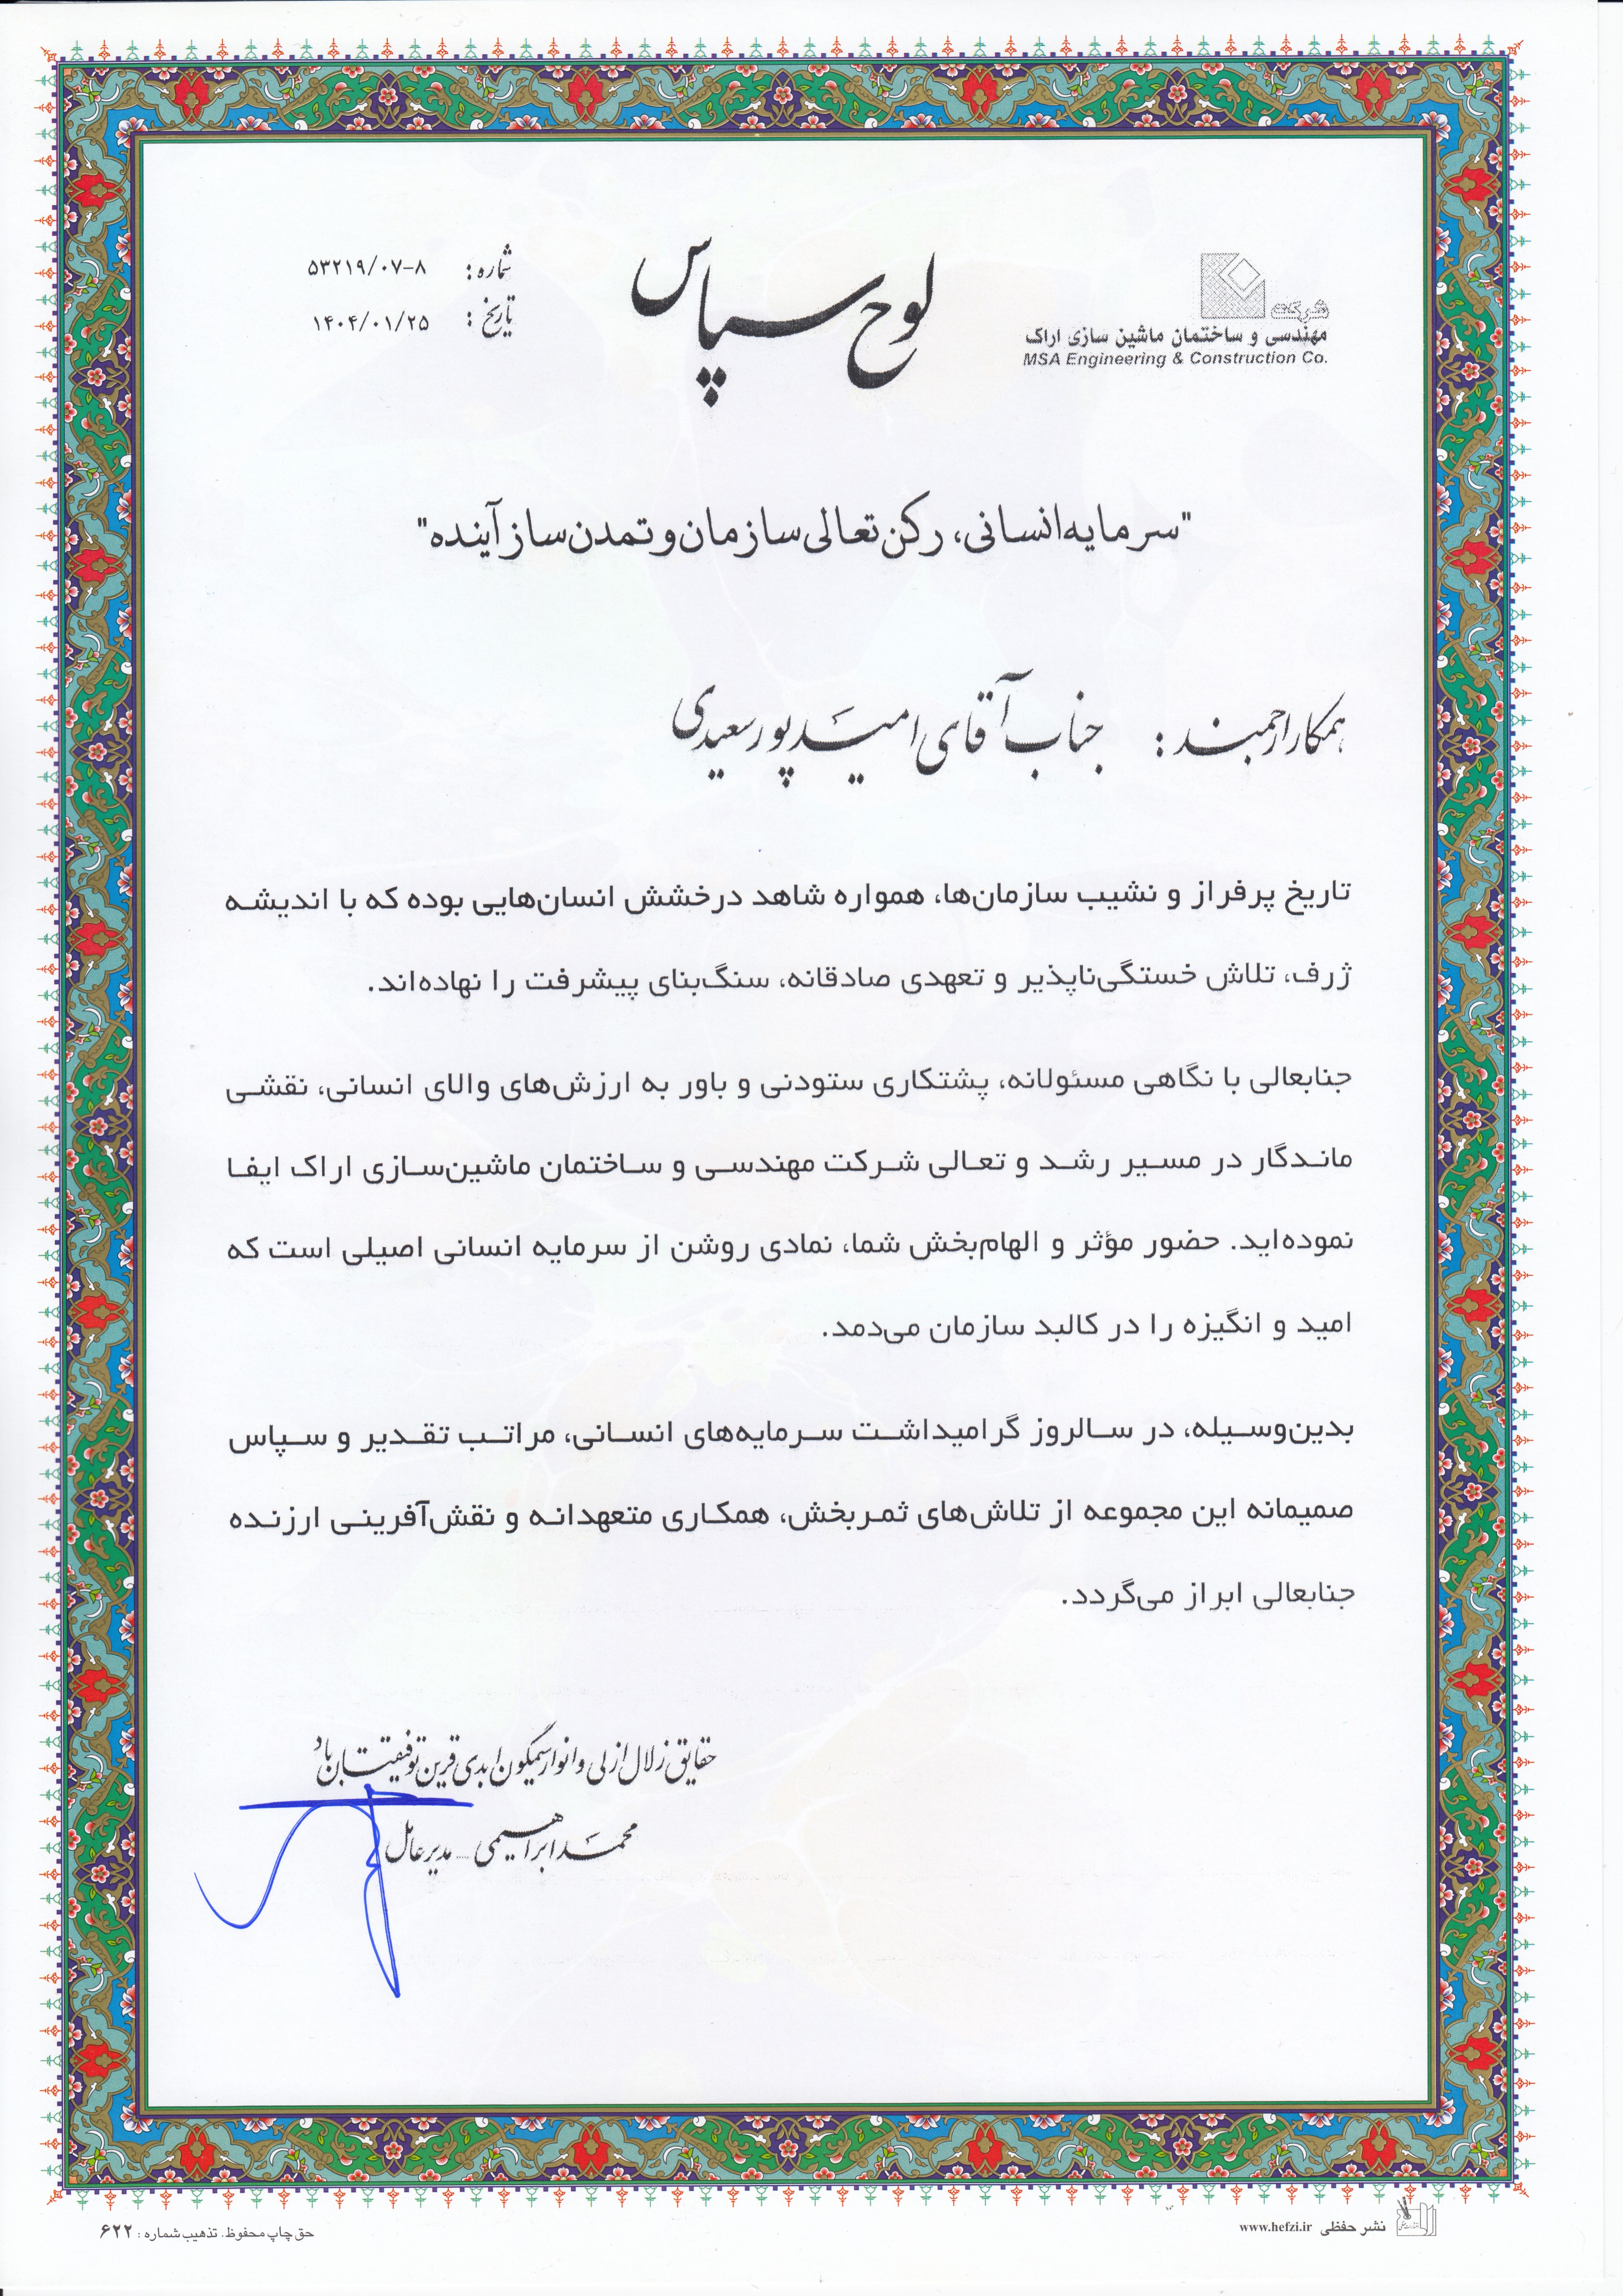 شرکت
مهندسی و ساختمان ماشین سازی اراک
MSA Engineering & Construction Co.
لوح سپاس
شماره: ۵۳۲۱۹/۰۷-۸
تاریخ: ۱۴۰۴/۰۱/۲۵
"سرمایه انسانی، رکن تعالی سازمان و تمدن ساز آینده"
همکار ارجمند: جناب آقای امید پورسعیدی
تاریخ پرفراز و نشیب سازمان‌ها، همواره شاهد درخشش انسان‌هایی بوده که با اندیشه
ژرف، تلاش خستگی‌ناپذیر و تعهدی صادقانه، سنگ‌بنای پیشرفت را نهاده‌اند.
جنابعالی با نگاهی مسئولانه، پشتکاری ستودنی و باور به ارزش‌های والای انسانی، نقشی
ماندگار در مسیر رشد و تعالی شرکت مهندسی و ساختمان ماشین‌سازی اراک ایفا
نموده‌اید. حضور مؤثر و الهام‌بخش شما، نمادی روشن از سرمایه انسانی اصیلی است که
امید و انگیزه را در کالبد سازمان می‌دمد.
بدین‌وسیله، در سالروز گرامیداشت سرمایه‌های انسانی، مراتب تقدیر و سپاس
صمیمانه این مجموعه از تلاش‌های ثمربخش، همکاری متعهدانه و نقش‌آفرینی ارزنده
جنابعالی ابراز می‌گردد.
حقایق زلال ازلی و انوار سیمگون ابدی قرین توفیقتان باد
محمد ابراهیمی - مدیر عامل
نشر حفظی www.hefzi.ir
حق چاپ محفوظ. تذهیب شماره : ۶۲۲